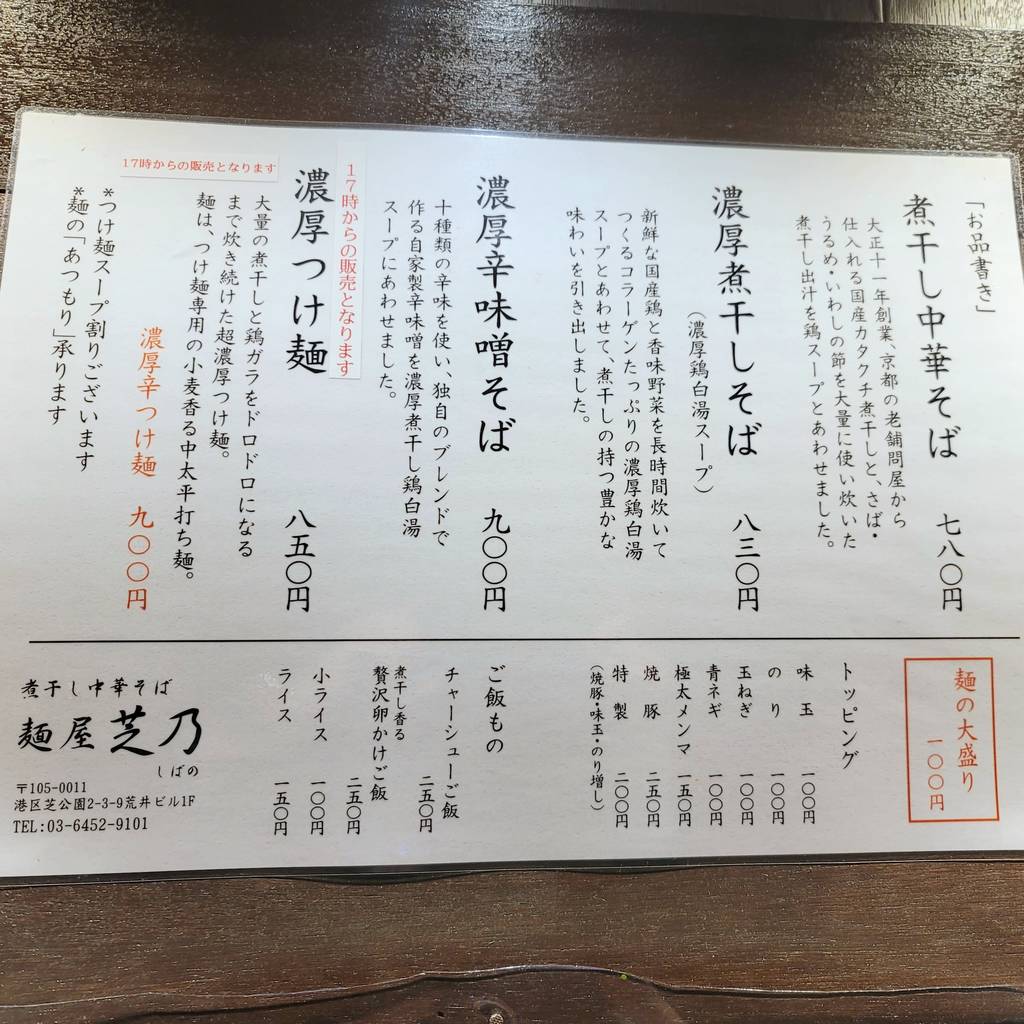 「お品書き」
煮干し中華そば 七八〇円
大正十一年創業、京都の老舗問屋から
仕入れる国産カタクチ煮干しと、さば・
うるめ・いわしの節を大量に使い炊いた
煮干し出汁を鶏スープとあわせました。
濃厚煮干しそば 八三〇円
(濃厚鶏白湯スープ)
新鮮な国産鶏と香味野菜を長時間炊いて
つくるコラーゲンたっぷりの濃厚鶏白湯
スープとあわせて、煮干しの持つ豊かな
味わいを引き出しました。
濃厚辛味噌そば 九〇〇円
十種類の辛味を使い、独自のブレンドで
作る自家製辛味噌を濃厚煮干し鶏白湯
スープにあわせました。
17時からの販売となります
濃厚つけ麺 八五〇円
大量の煮干しと鶏ガラをドロドロになる
まで炊き続けた超濃厚つけ麺。
麺は、つけ麺専用の小麦香る中太平打ち麺。
17時からの販売となります
濃厚辛つけ麺 九〇〇円
*つけ麺スープ割りございます
*麺の「あつもり」承ります
麺の大盛り
一〇〇円
トッピング
味玉 一〇〇円
のり 一〇〇円
玉ねぎ 一〇〇円
青ネギ 一〇〇円
極太メンマ 一五〇円
焼豚 二五〇円
特製 二〇〇円
(焼豚・味玉・のり増し)
ご飯もの
チャーシューご飯
二五〇円
煮干し香る
贅沢卵かけご飯
二五〇円
小ライス 一〇〇円
ライス 一五〇円
煮干し中華そば
麺屋 芝乃
しばの
〒105-0011
港区芝公園2-3-9荒井ビル1F
TEL:03-6452-9101